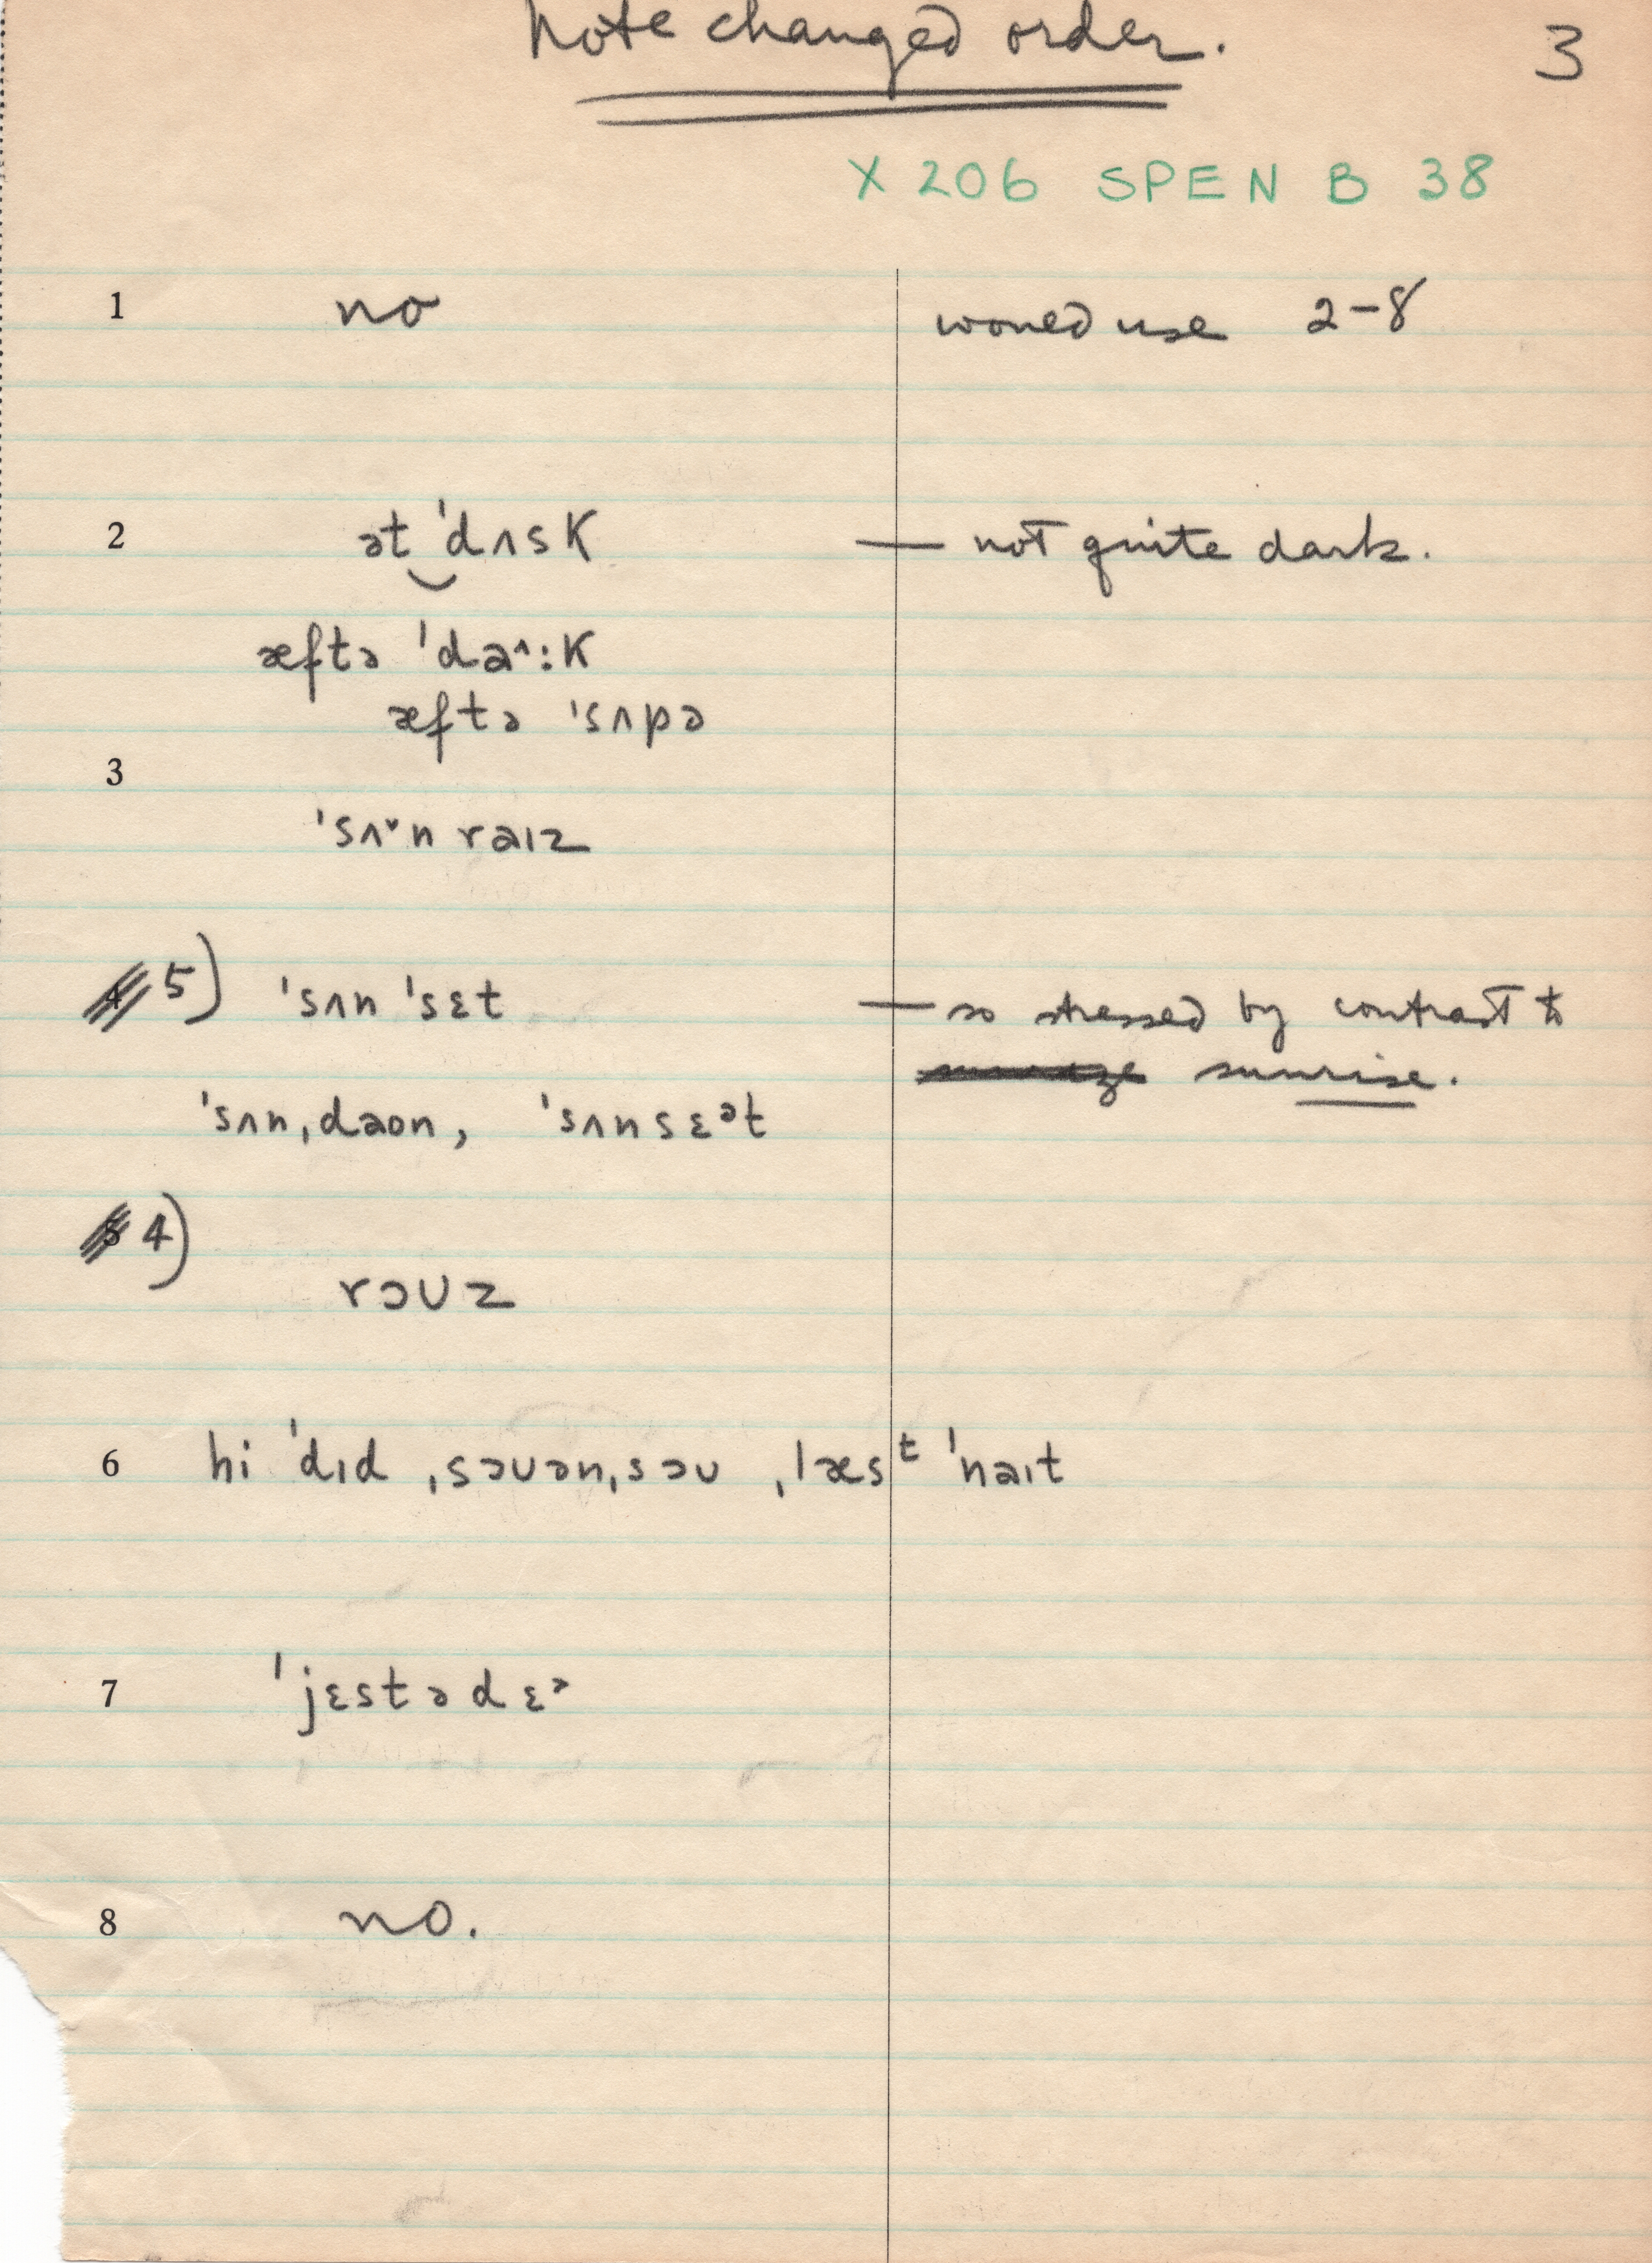 Note changed order. 3
X 206 SPEN B 38
1 no would use 2-8
2 ət ˈdʌsk — not quite dark.
æftə ˈda^:k
æftə ˈsʌpə
3
ˈsʌˇn raɪz
4 5) ˈsʌn ˈsɛt — so stressed by contrast to
sunrise.
ˈsʌn,daon, ˈsʌnsɛᵊt
5 4)
rəʊz
6 hi ˈdɪd ˌsəʊən,səʊ ˌlæsᵗ ˈnaɪt
7 ˈjɛstədɛᵊ
8 no.